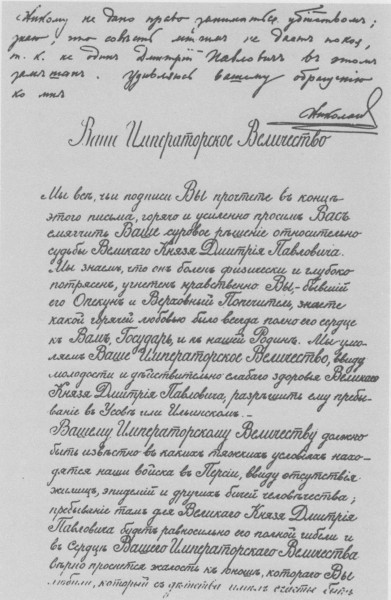 Никому не дано право заниматься убійствомъ;
знаю, что совѣсть многимъ не даетъ покоя,
т. к. не одинъ Дмитрій Павловичъ въ этомъ
замѣшан. Удивляюсь вашему обращенію
ко мнѣ
Николай
Ваше Императорское Величество
Мы всѣ, чьи подписи ВЫ прочтете въ концѣ
этого письма, горячо и усиленно просимъ Васъ
смягчить Ваше суровое рѣшение относительно
судьбы Великаго Князя Дмитрія Павловича.
Мы знаемъ, что онъ боленъ физически и глубоко
потрясенъ, угнетенъ нравственно ВЫ-бывшій
его Опекунъ и Верховный Попечитель, знаете
какой горячей любовью было всегда полно его сердце
къ Вамъ, Государь, и къ нашей Родинѣ. Мы умо-
ляемъ Ваше Императорское Величество, ввиду
молодости и дѣйствительно слабаго здоровья Великаго
Князя Дмитрія Павловича, разрѣшить ему пребы-
ваніе въ Усовѣ или Ильинскомъ.-
Вашему Императорскому Величеству должно
быть извѣстно въ какихъ тяжкихъ условіяхъ нахо-
дятся наши войска въ Персіи, ввиду отсутствія
жилищъ, эпидемій и другихъ бичей человѣчества;
пребываніе тамъ для Великаго Князя Дмитрія
Павловича будетъ равносильно его полной гибели и
въ Сердцѣ Вашего Императорскаго Величества
вѣрно проснется жалость къ юношѣ, котораго Вы
любили, который съ дѣтства имѣлъ счастье быть